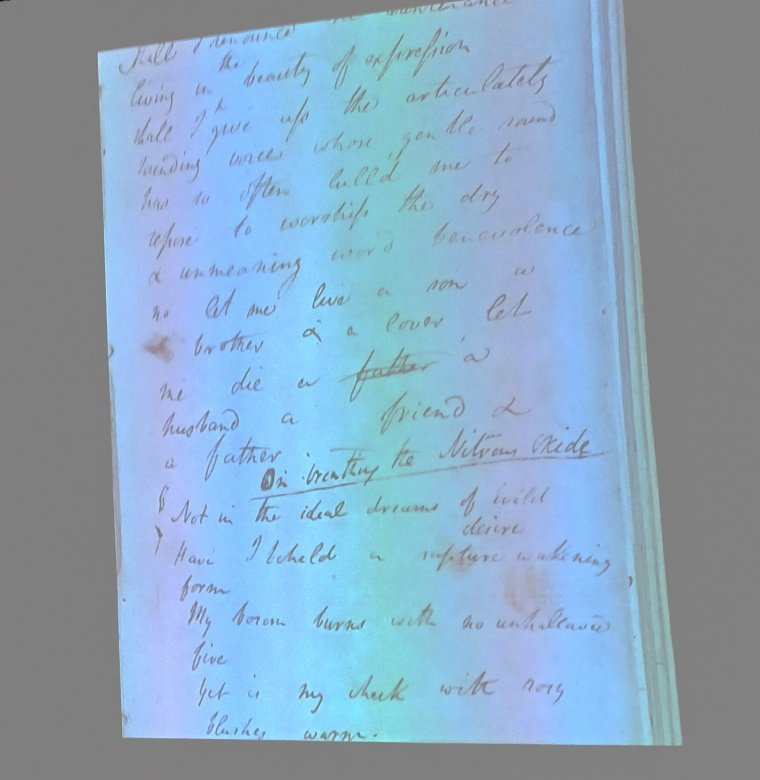 Shall I renounce the countenance
living in the beauty of expression
shall I give up the articulately
sounding voice whose gentle sound
has so often lulld me to
repose to worship the dry
& unmeaning word benevolence
no let me live a son a
brother & a lover let
me die a father a
husband a friend &
a father
On breathing the Nitrous oxide
Not in the ideal dreams of wild
desire
Have I beheld a rapture wakening
form
My bosom burns with no unhallowed
fire
Yet is my cheek with rosy
blushes warm.